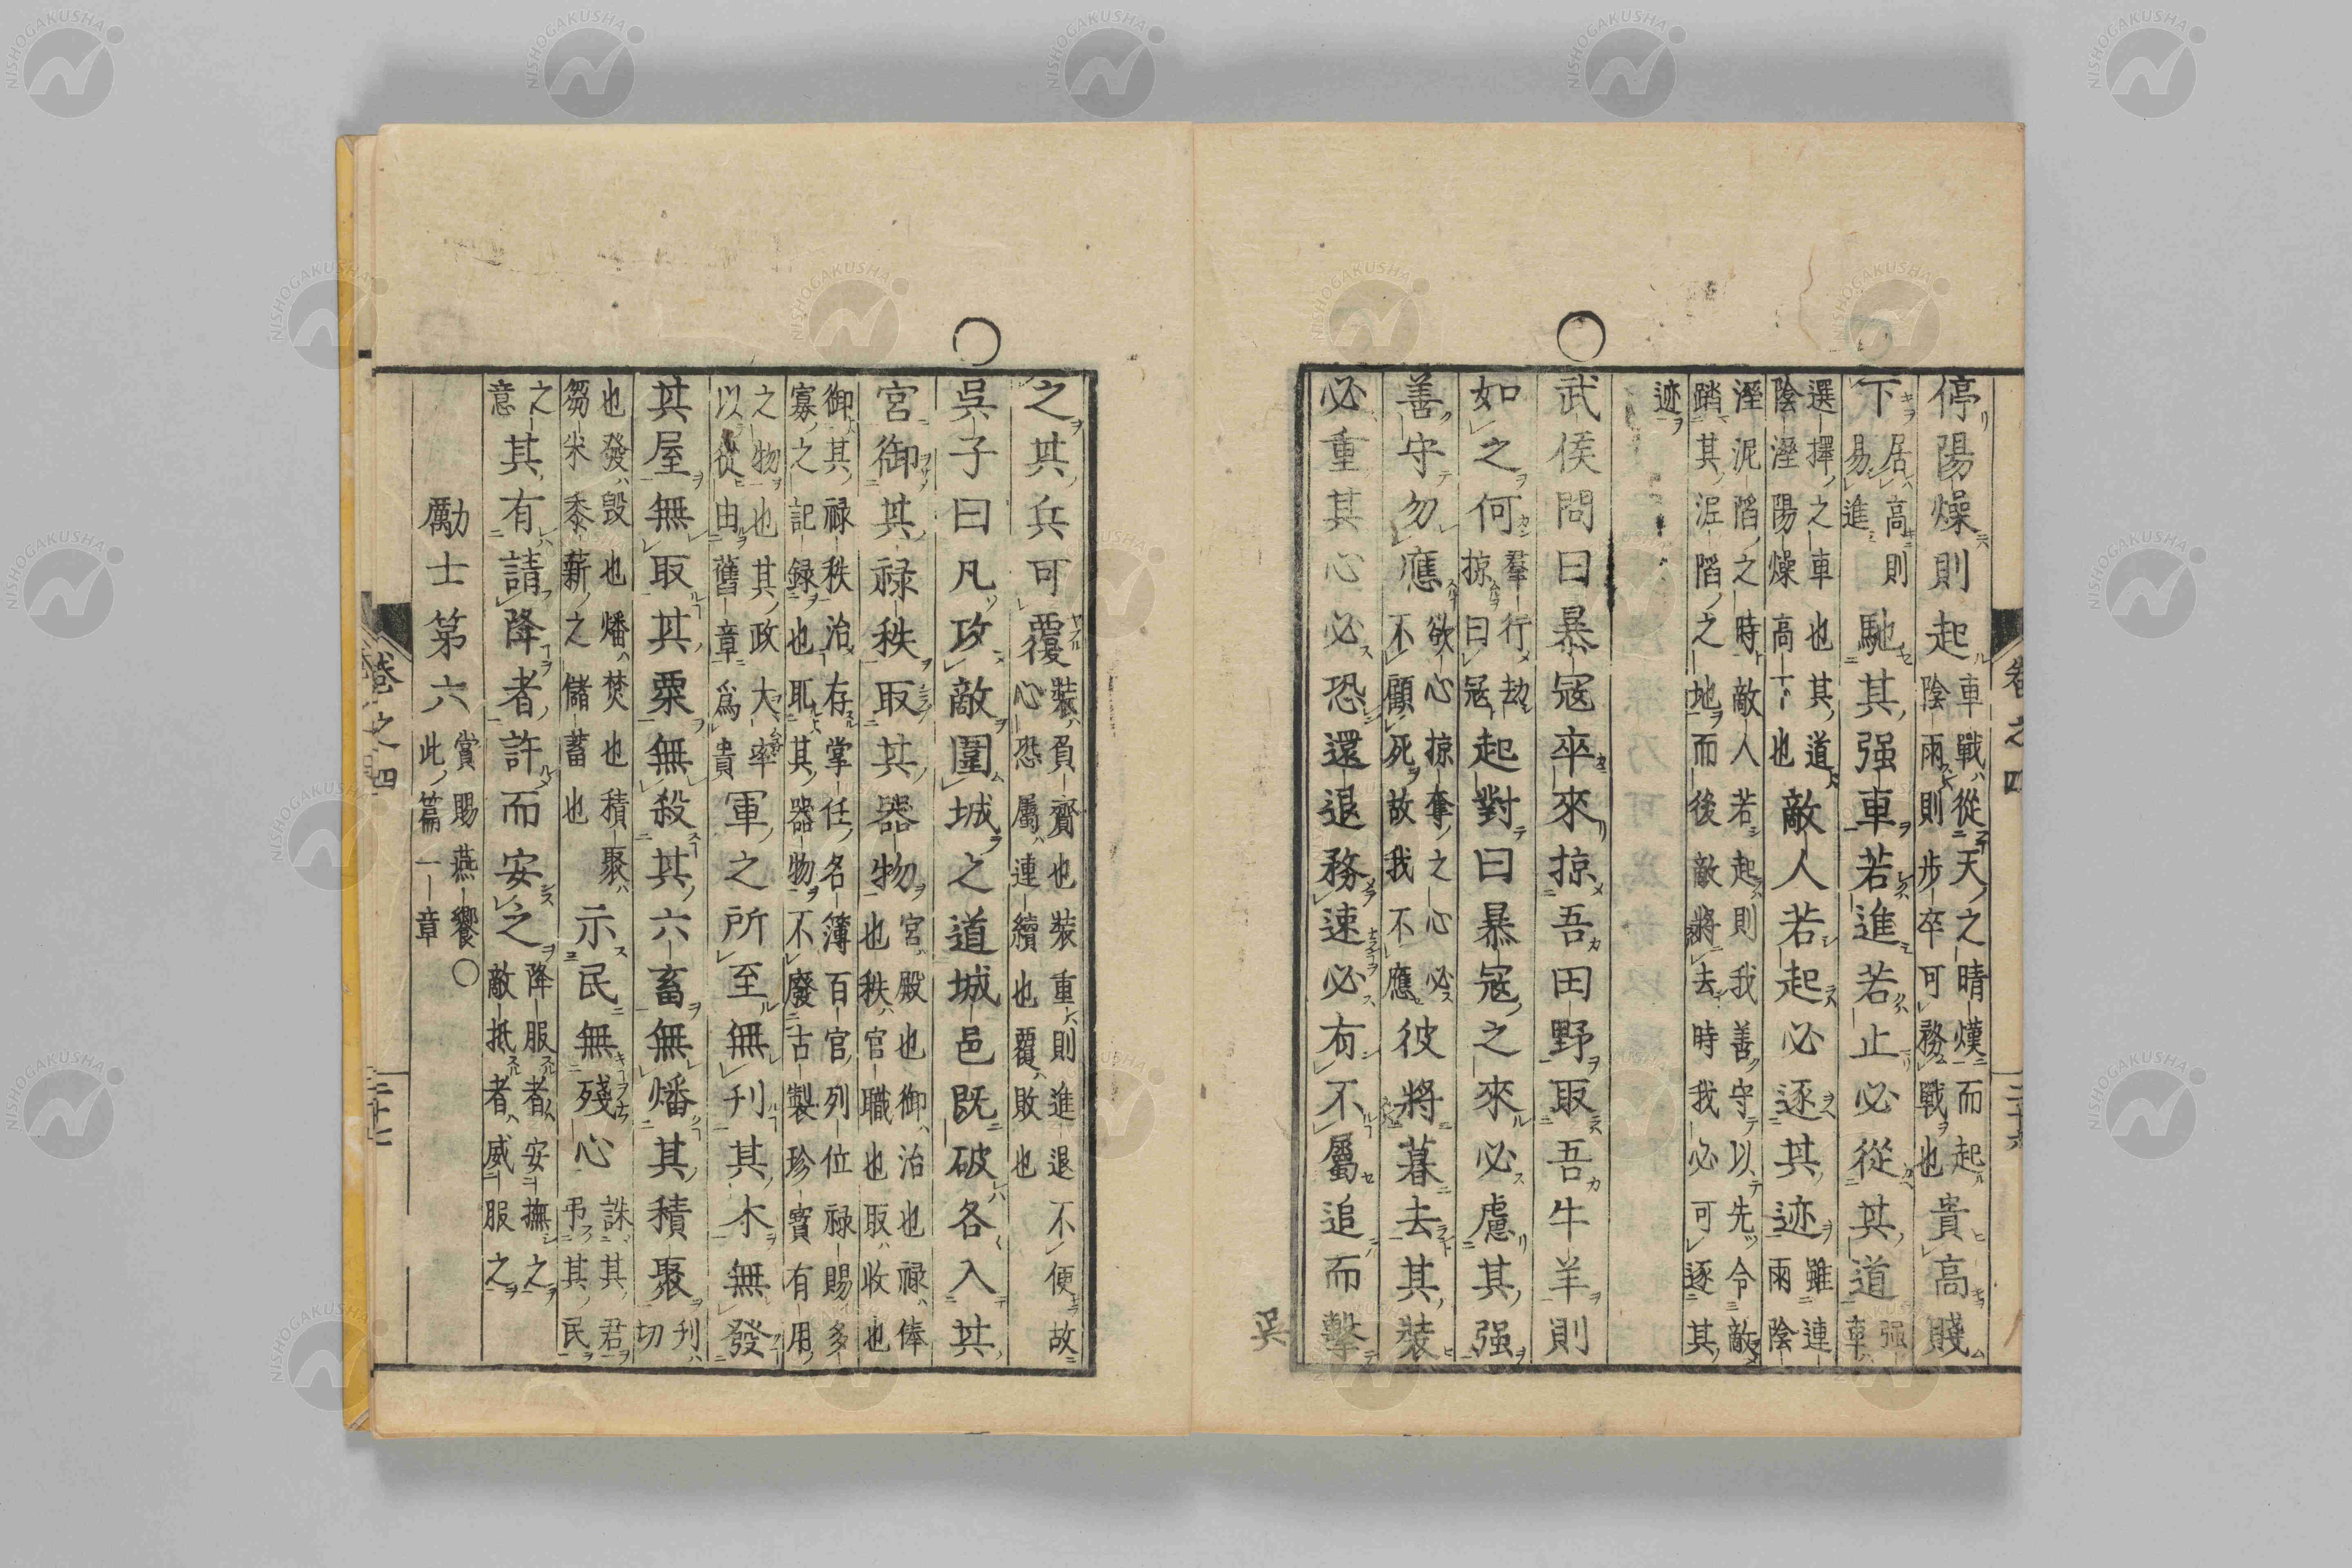 卷之四
停陽燥則起車戰從天之晴熯而起陰雨則步卒可務戰也貴高賤
下居高則易進馳其强車若進若止必從其道强車
選擇之車也其道陰溼陽燥高下也敵人若起必逐其迹雖連雨陰
溼泥陷之時敵人若起則我善守以先令敵踏其泥陷之地而後敵將去時我必可逐其
迹
○武侯問曰暴寇卒來掠吾田野取吾牛羊則
如之何羣行劫掠曰寇起對曰暴寇之來必慮其强
善守勿應欲心掠奪之心必不顧死故我不應彼將暮去其裝
必重其心必恐還退務速必有不屬追而擊
吳
之其兵可覆裝負齎也裝重則進退不便故心恐屬連續也覆敗也
○吳子曰凡攻敵圍城之道城邑既破各入其
宮御其祿秩取其器物宮殿也御治也祿俸也秩官職也取收也
御其祿秩治存掌任名簿百官列位祿賜多寡之記録也取其器物不廢古製珍寶有用
之物也其政大率以從由舊章爲貴軍之所至無刊其木無發
其屋無取其粟無殺其六畜無燔其積聚刊切
也發毀也燔焚也積聚芻米黍薪之儲蓄也示民無殘心誅其君弔其民
之意其有請降者許而安之降服者安撫之敵抵者威服之
勵士第六賞賜燕饗○此篇一章
卷之四
三十七
NISHOGAKUSHA